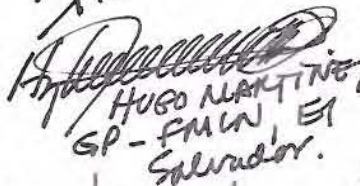 HUGO MARTINEZ
GP - FMLN, El
Salvador.